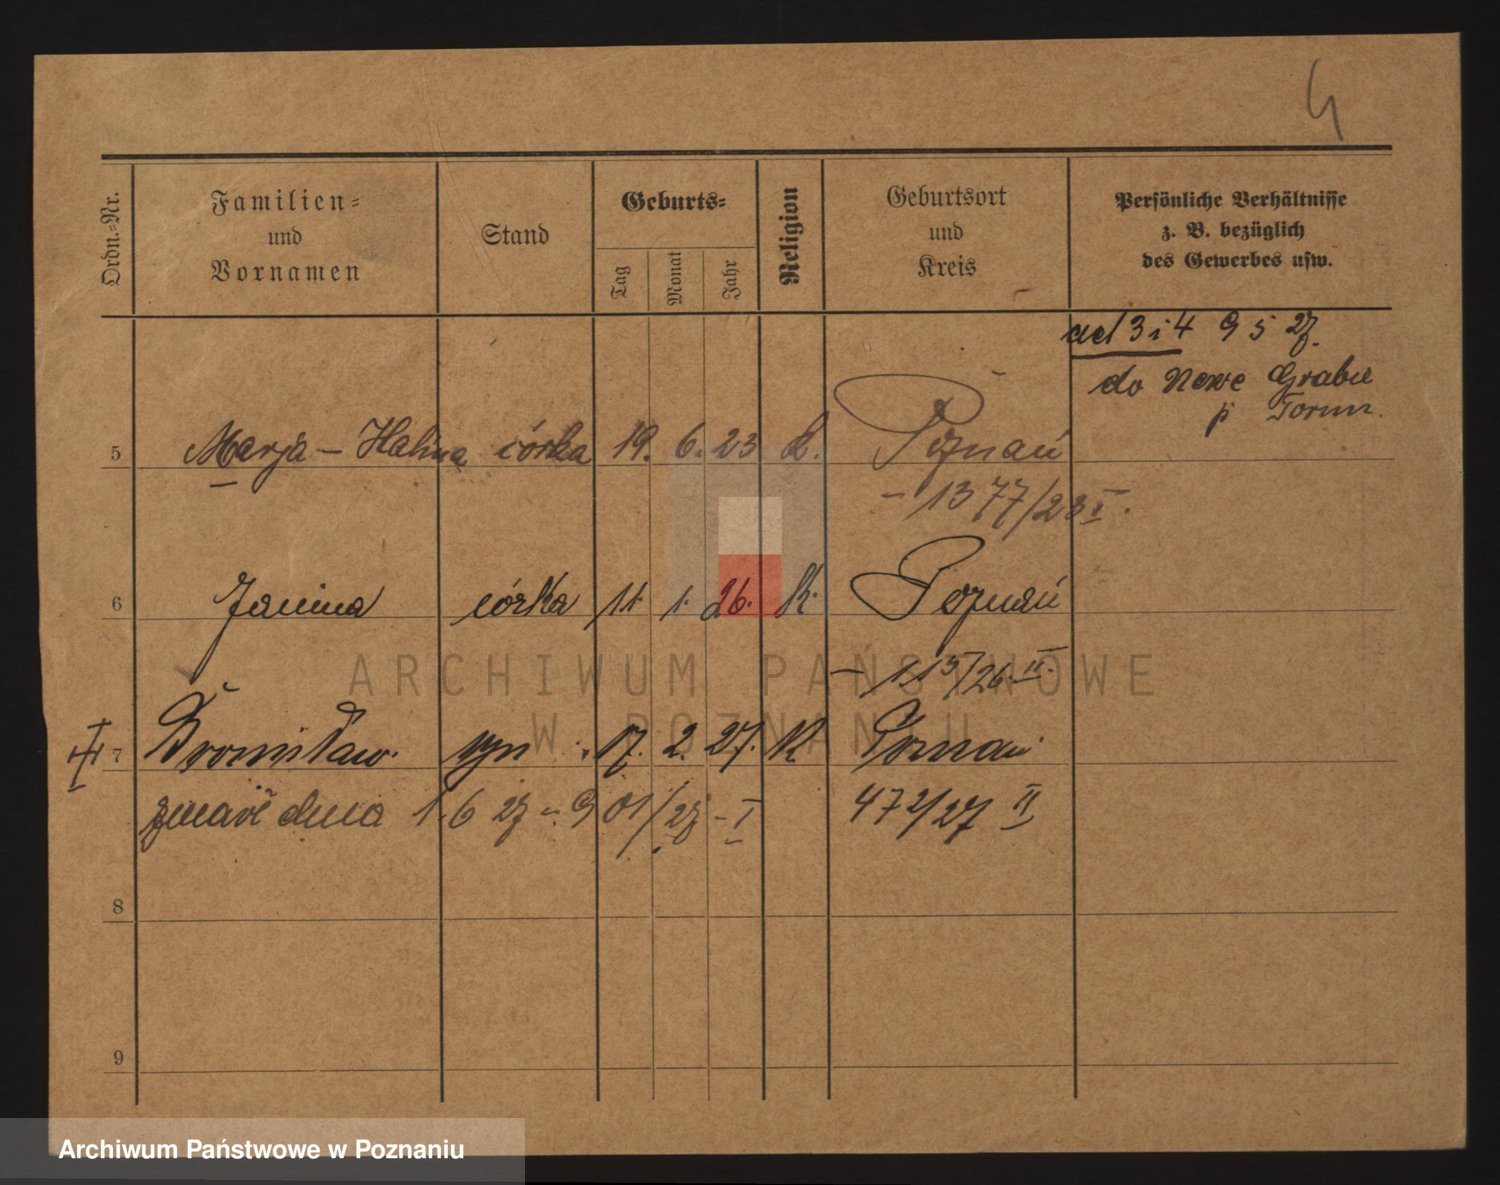 4
Ordn.-Nr. Familien- und Vornamen Stand Geburts- Tag Monat Jahr Religion Geburtsort und Kreis Persönliche Verhältnisse z. B. bezüglich des Gewerbes usw.
ad 3 i 4 9 5 27.
do Nowe Grabie
p Toruń.
5 Marja - Halina córka 19. 6. 23 k. Poznań
- 1377/23 I.
6 Janina córka 11. 1. 26. K. Poznań
- 115/26. II.
7 Bronisław syn 17. 2. 27. K Poznań
zmarł dnia 1. 6 27 - 901/27 - I 472/27 II
8
9
ARCHIWUM PAŃSTWOWE
W POZNANIU
Archiwum Państwowe w Poznaniu